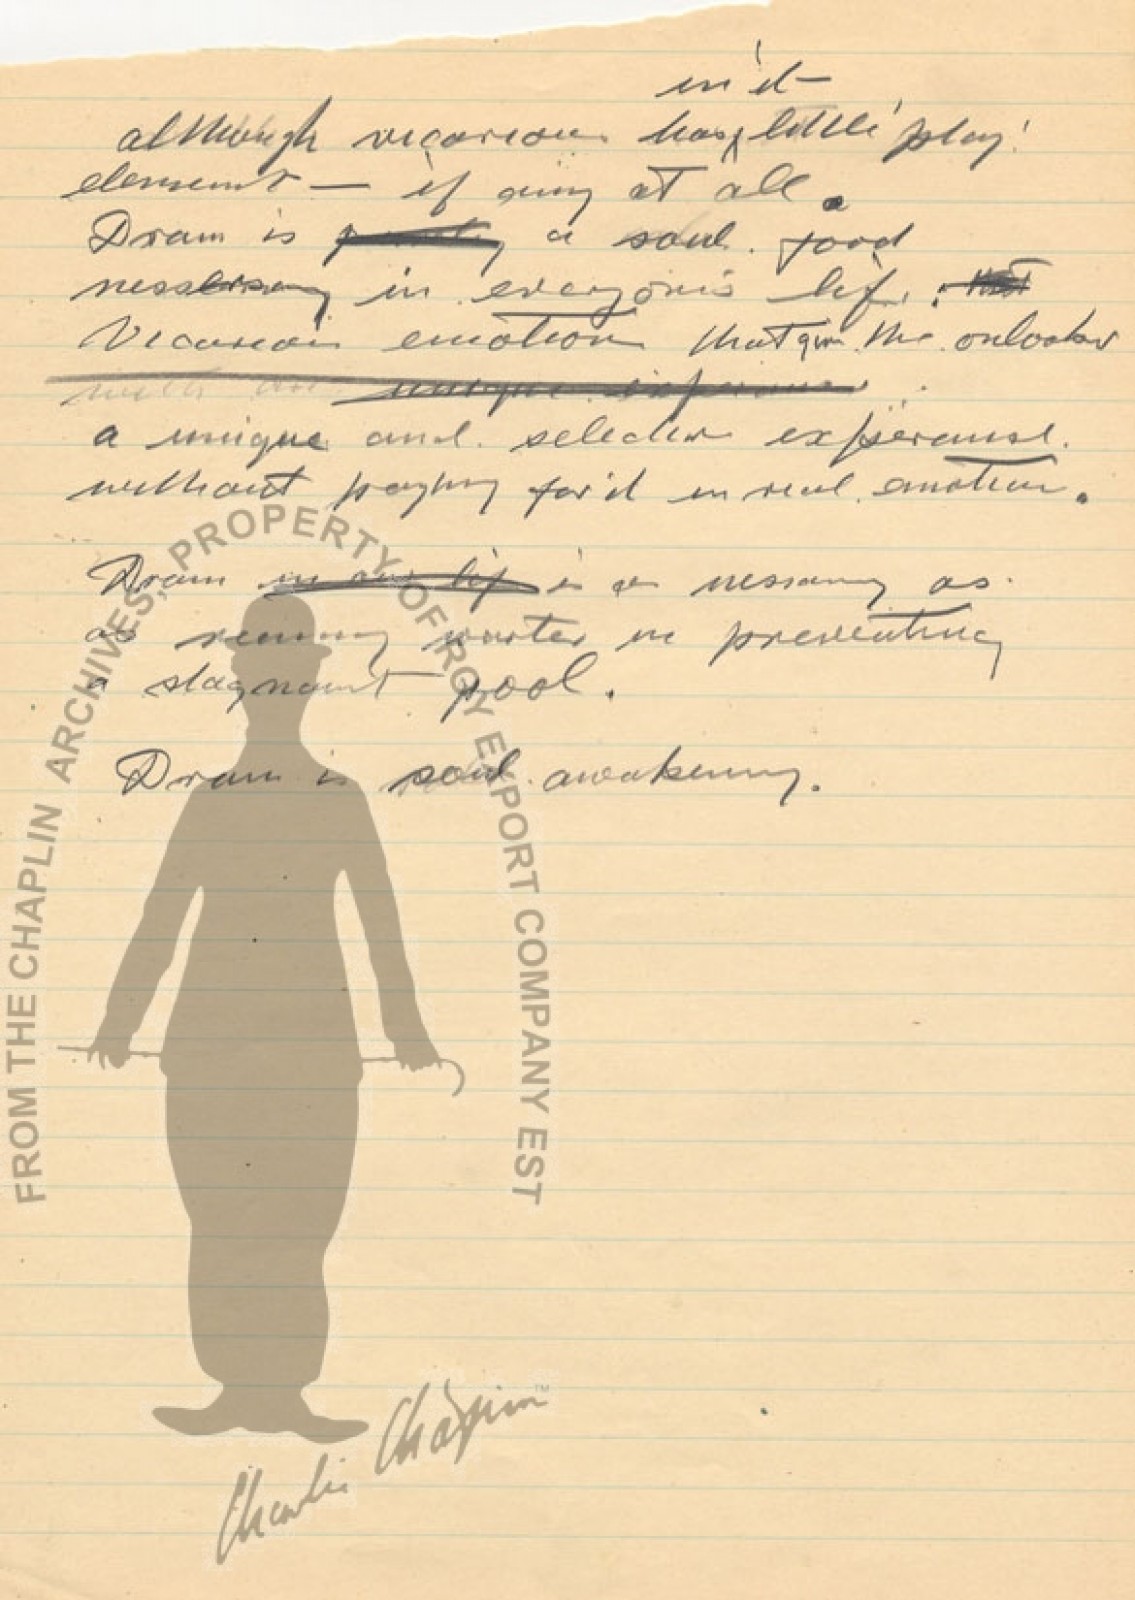 in it
although vicarious has little 'play'
element — if any at all.
Dram is a soul food
nessessary in everyone's life.
Vicarious emotion that give the onlooker
a unique and selective experience
without paying for it in real emotion.
Dram in our life is as nessary as
as running water in preventing
a stagnant pool.
Dram is soul awakening.
FROM THE CHAPLIN ARCHIVES, PROPERTY OF ROY EXPORT COMPANY EST
Charlie Chaplin™